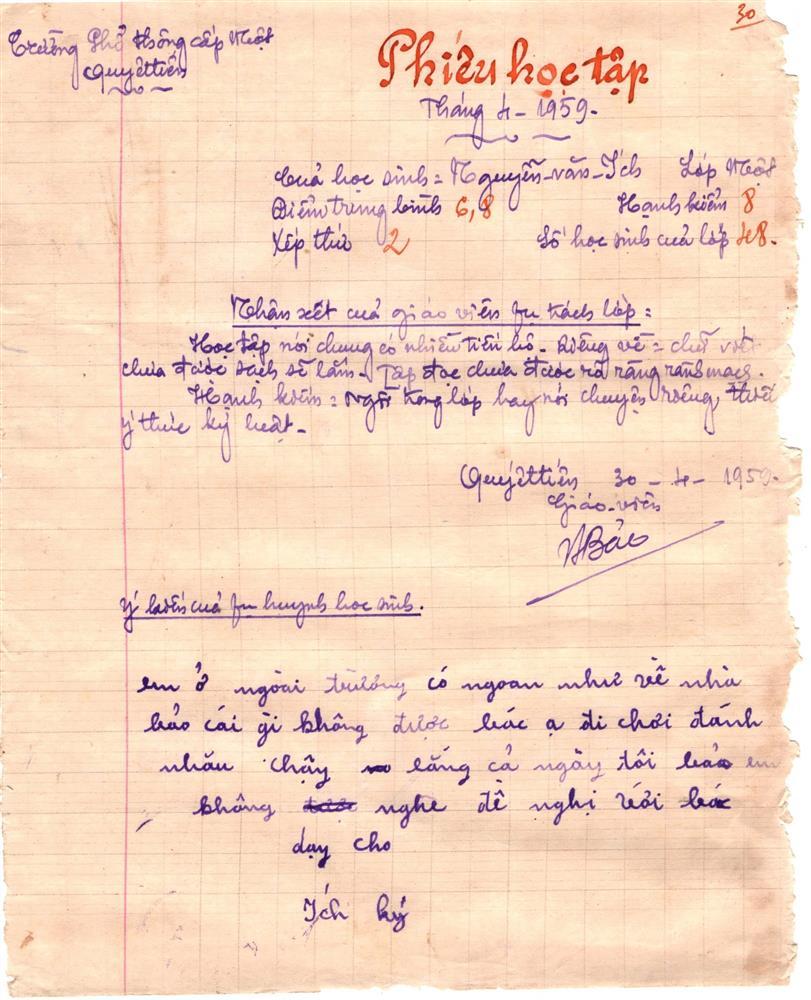 30
Trường Phổ thông cấp Một
Quyết tiến
Phiếu học tập
Tháng 4 - 1959.
Của học sinh = Nguyễn-văn-Ích Lớp Một
Điểm trung bình 6,8 Hạnh kiểm 8
Xếp thứ 2 Số học sinh của lớp 48.
Nhận xét của giáo viên fụ trách lớp =
Học tập nói chung có nhiều tiến bộ. Riêng về = chữ viết
chưa được sạch sẽ lắm. Tập đọc chưa được rõ ràng rành mạch.
Hạnh kiểm = Ngồi trong lớp hay nói chuyện riêng, thiếu
ý thức kỷ luật.
Quyết tiến 30 - 4 - 1959.
Giáo viên
Bảo
Ý kiến của fụ huynh học sinh.
em ở ngoài trường có ngoan như về nhà
bảo cái gì không được bác ạ đi chơi đánh
nhău chậy lăng cả ngày tôi bảo em
không nghe đề nghị với bác
dạy cho
Ích ký